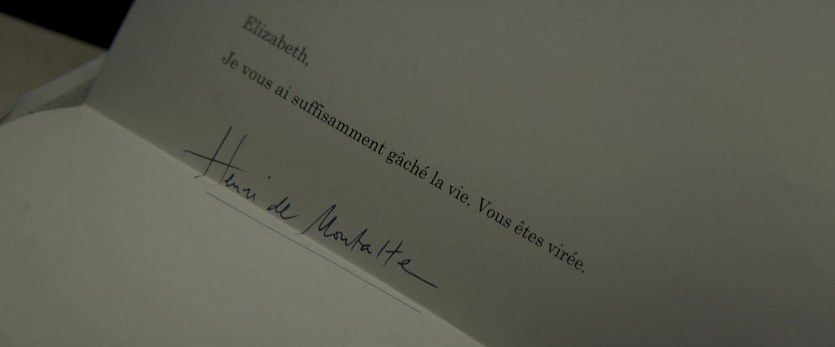 Elizabeth,
Je vous ai suffisamment gâché la vie. Vous êtes virée.
Henri de Montalte